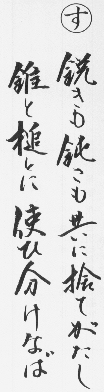 す
鋭きも鈍きも共に捨てがたし
錐と槌とに使ひ分けなば